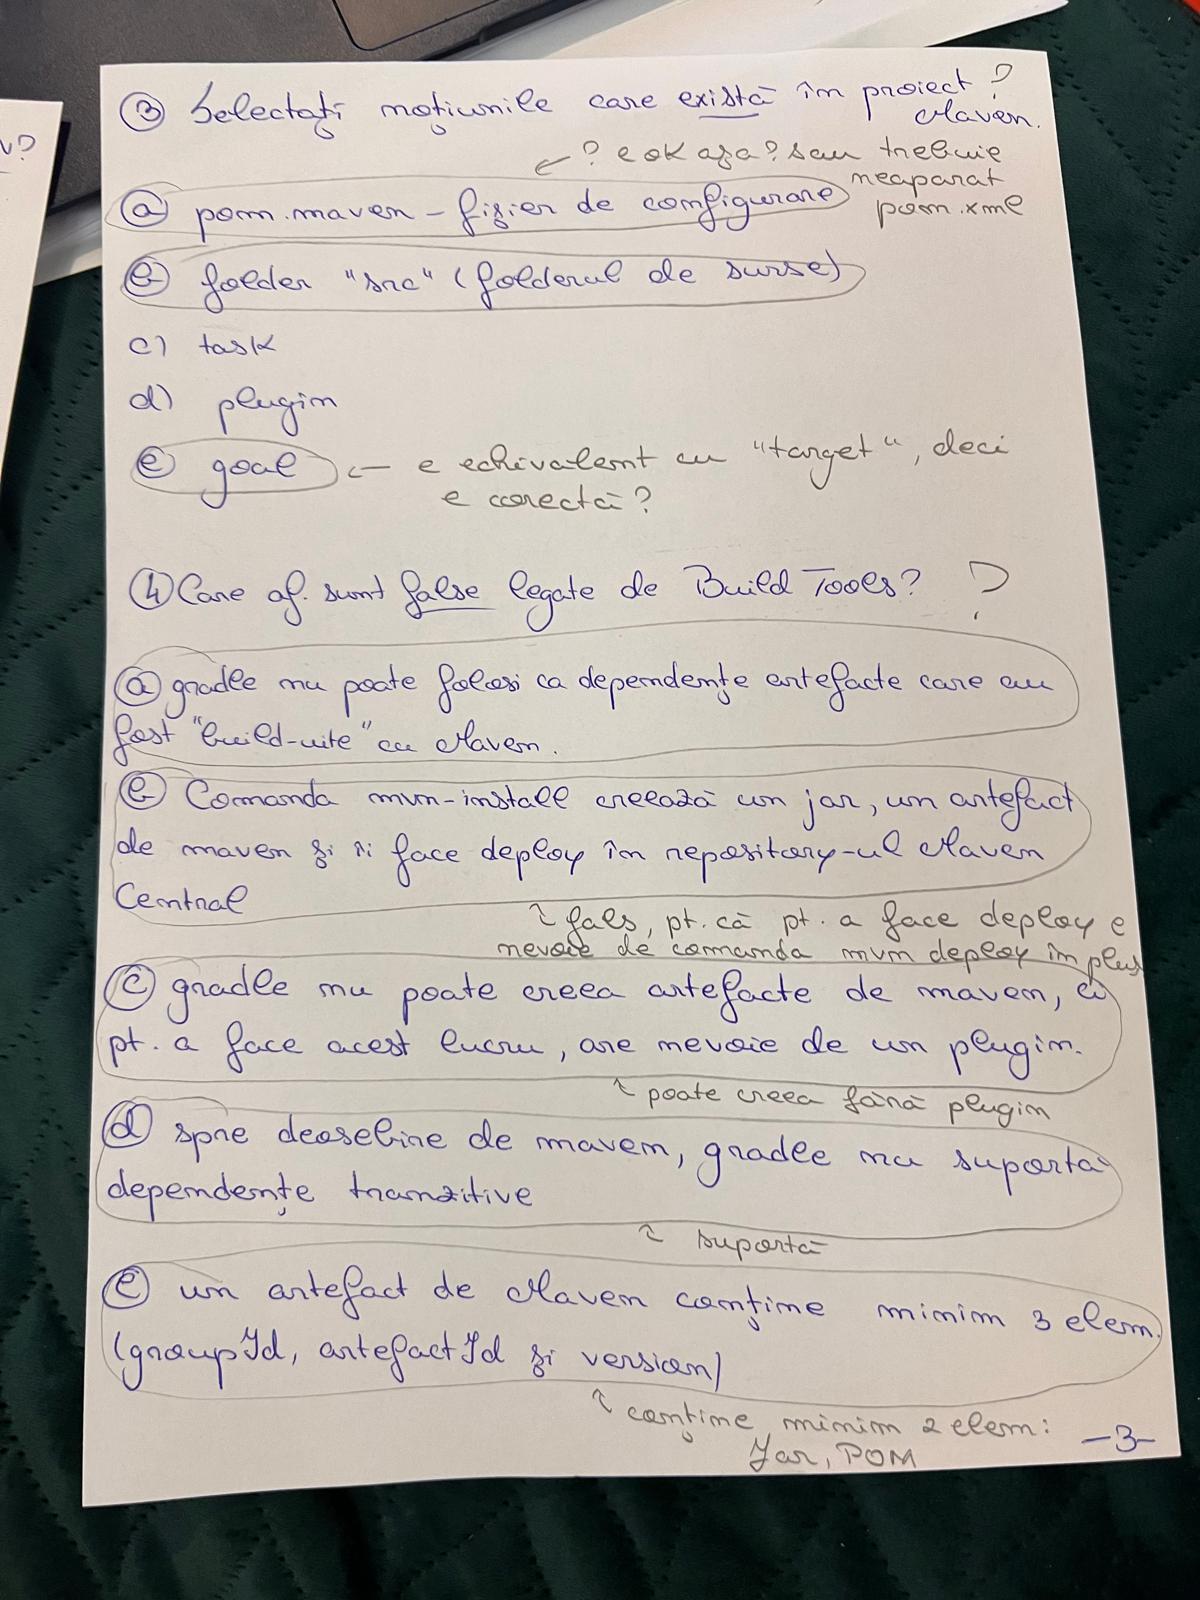 v?
③ Selectați noțiunile care există în proiect ?
Maven.
? e ok așa? sau trebuie
neapărat
pom.xml
ⓐ pom.maven - fișier de configurare
ⓑ folder "src" (folderul de surse)
c) task
d) plugin
ⓔ goal ← e echivalent cu "target", deci
e corectă?
④ Care af. sunt false legate de Build Tools? ?
ⓐ gradle nu poate folosi ca dependențe artefacte care au
fost "build-uite" cu Maven.
ⓑ Comanda mvn-install creează un jar, un artefact
de maven și îi face deploy în repository-ul Maven
Central
fals, pt. că pt. a face deploy e
nevoie de comanda mvn deploy în plus
ⓒ gradle nu poate creea artefacte de maven, ci
pt. a face acest lucru, are nevoie de un plugin.
poate creea fără plugin
ⓓ spre deosebire de maven, gradle nu suportă
dependențe tranzitive
suportă
ⓔ un artefact de Maven conține minim 3 elem.
(groupId, artefactId și version)
conține minim 2 elem:
Jar, POM
-3-